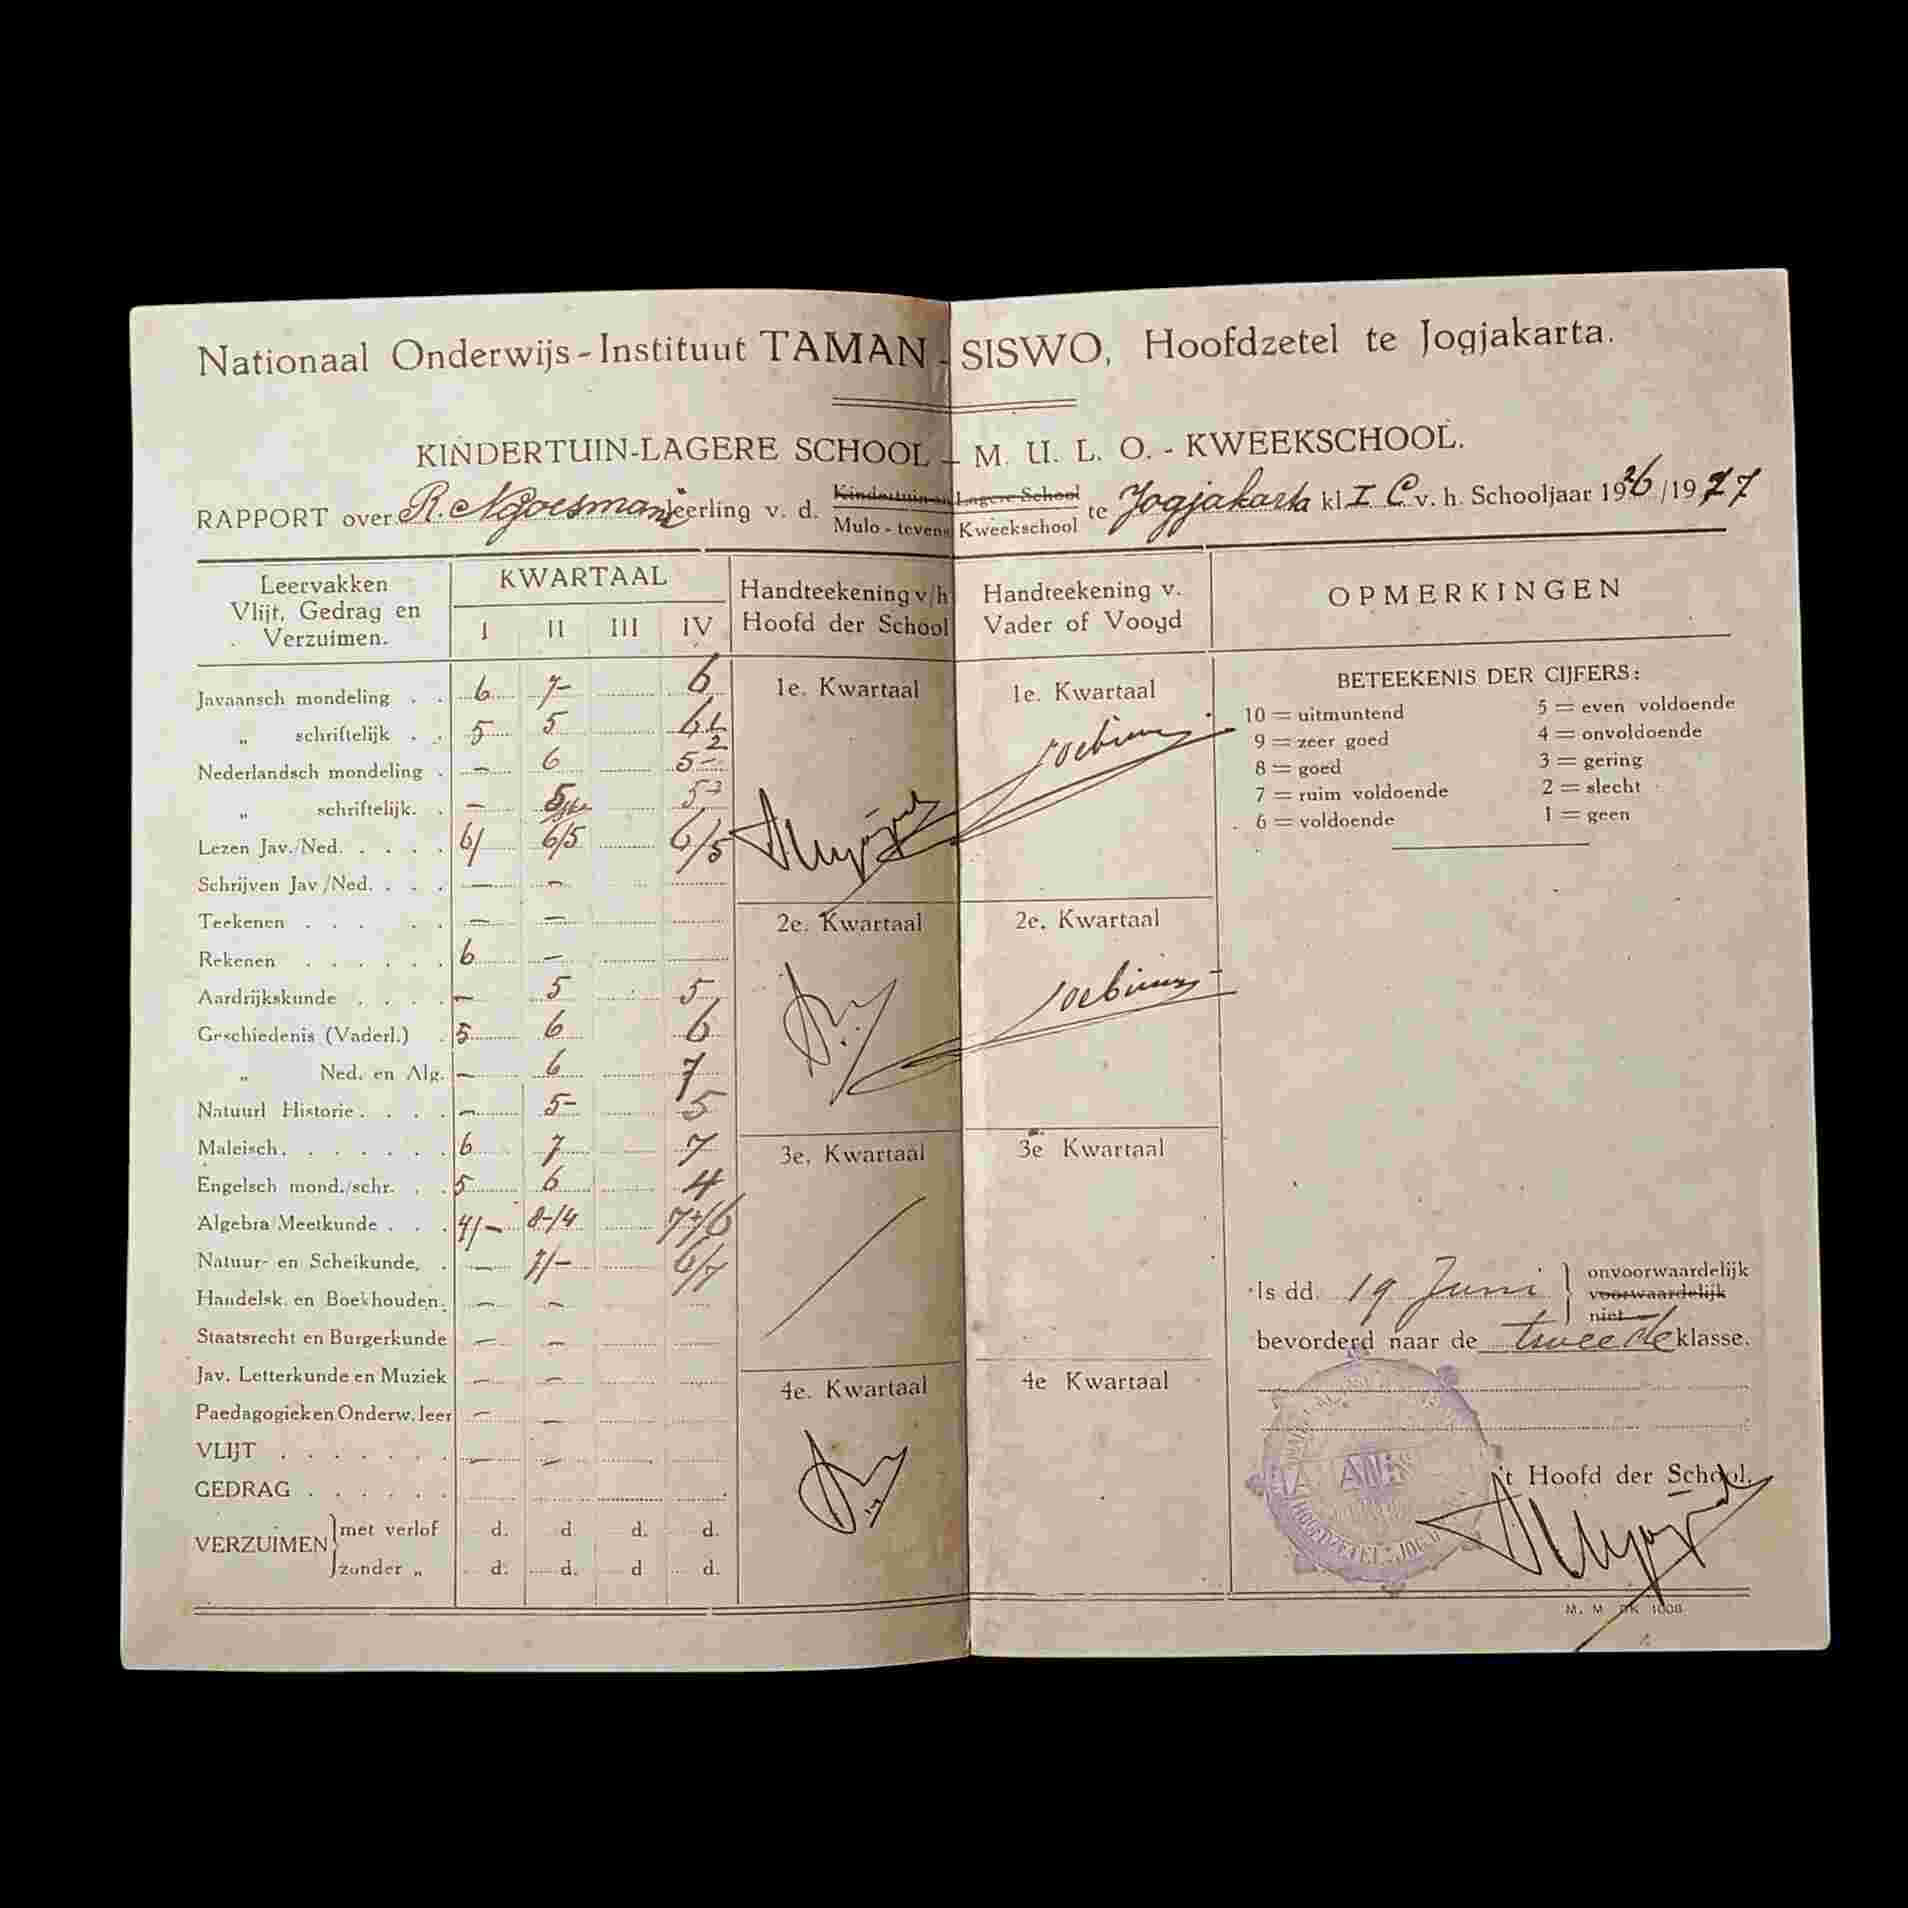 Nationaal Onderwijs-Instituut TAMAN-SISWO, Hoofdzetel te Jogjakarta.
KINDERTUIN-LAGERE SCHOOL - M. U. L. O. - KWEEKSCHOOL.
RAPPORT over R. Ngoesman leerling v. d. Kindertuin en Lagere School Mulo - tevens Kweekschool te Jogjakarta kl I C v. h. Schooljaar 1926/1927
Leervakken
Vlijt, Gedrag en
Verzuimen.
KWARTAAL
I II III IV
Handteekening v/h
Hoofd der School
Handteekening v.
Vader of Voogd
OPMERKINGEN
Javaansch mondeling . . 6 7- 6
„ schriftelijk . . 5 5
Nederlandsch mondeling . - 6 5-
„ schriftelijk. . - 5
Lezen Jav./Ned. . . . . 6/ 6/5 6/5
Schrijven Jav./Ned. . . . - -
Teekenen . . . . . - -
Rekenen . . . . . . 6 -
Aardrijkskunde . . . . - 5 5
Geschiedenis (Vaderl.) . 5 6 6
„ Ned. en Alg. - 6 7
Natuurl Historie . . . . - 5- 5
Maleisch . . . . . . . 6 7 7
Engelsch mond./schr. . . 5 6 4
Algebra/Meetkunde . . . 4/- 8-/4 7+/6
Natuur- en Scheikunde, . - 7/- 6/7
Handelsk. en Boekhouden. - -
Staatsrecht en Burgerkunde - -
Jav. Letterkunde en Muziek - -
Paedagogiek en Onderw. leer - -
VLIJT . . . . . . . - -
GEDRAG . . . . .
VERZUIMEN } met verlof d. d. d. d.
zonder „ d. d. d d.
1e. Kwartaal
2e. Kwartaal
3e. Kwartaal
4e. Kwartaal
1e. Kwartaal
2e. Kwartaal
3e Kwartaal
4e Kwartaal
BETEEKENIS DER CIJFERS:
10 = uitmuntend 5 = even voldoende
9 = zeer goed 4 = onvoldoende
8 = goed 3 = gering
7 = ruim voldoende 2 = slecht
6 = voldoende 1 = geen
Is dd. 19 Juni } onvoorwaardelijk
voorwaardelijk
niet
bevorderd naar de tweede klasse.
't Hoofd der School.
HOOFDZETEL
M. M. DK 1008